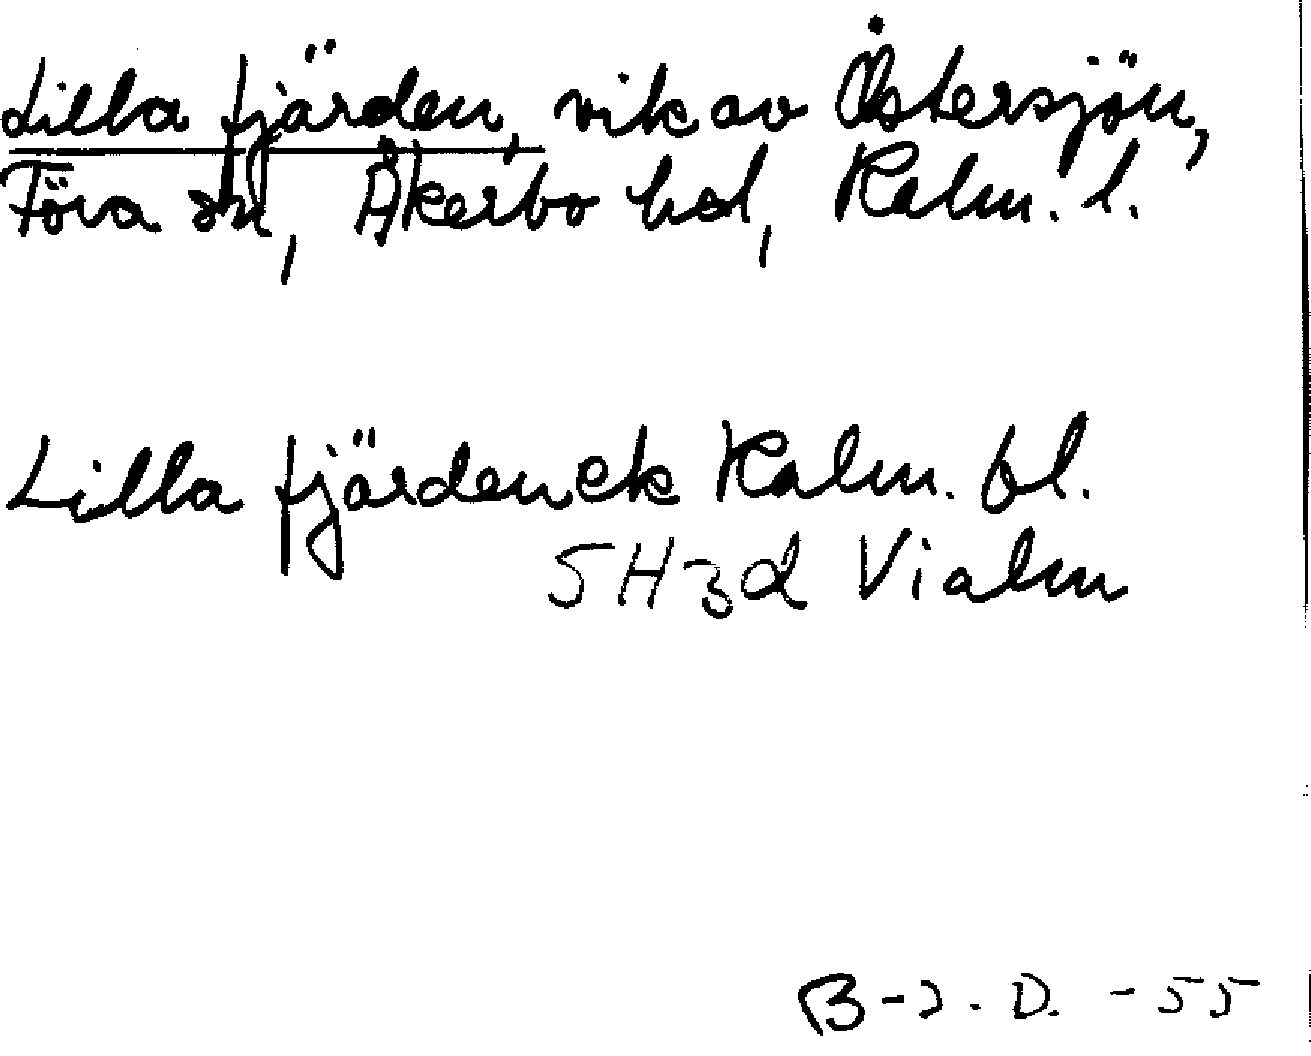 Lilla fjärden, vik av Östersjön,
Föra sn, Åkerbo hd, Kalm. l.
Lilla fjärden ek Kalm. bl.
5H3d Vialm
B-J. D. -55